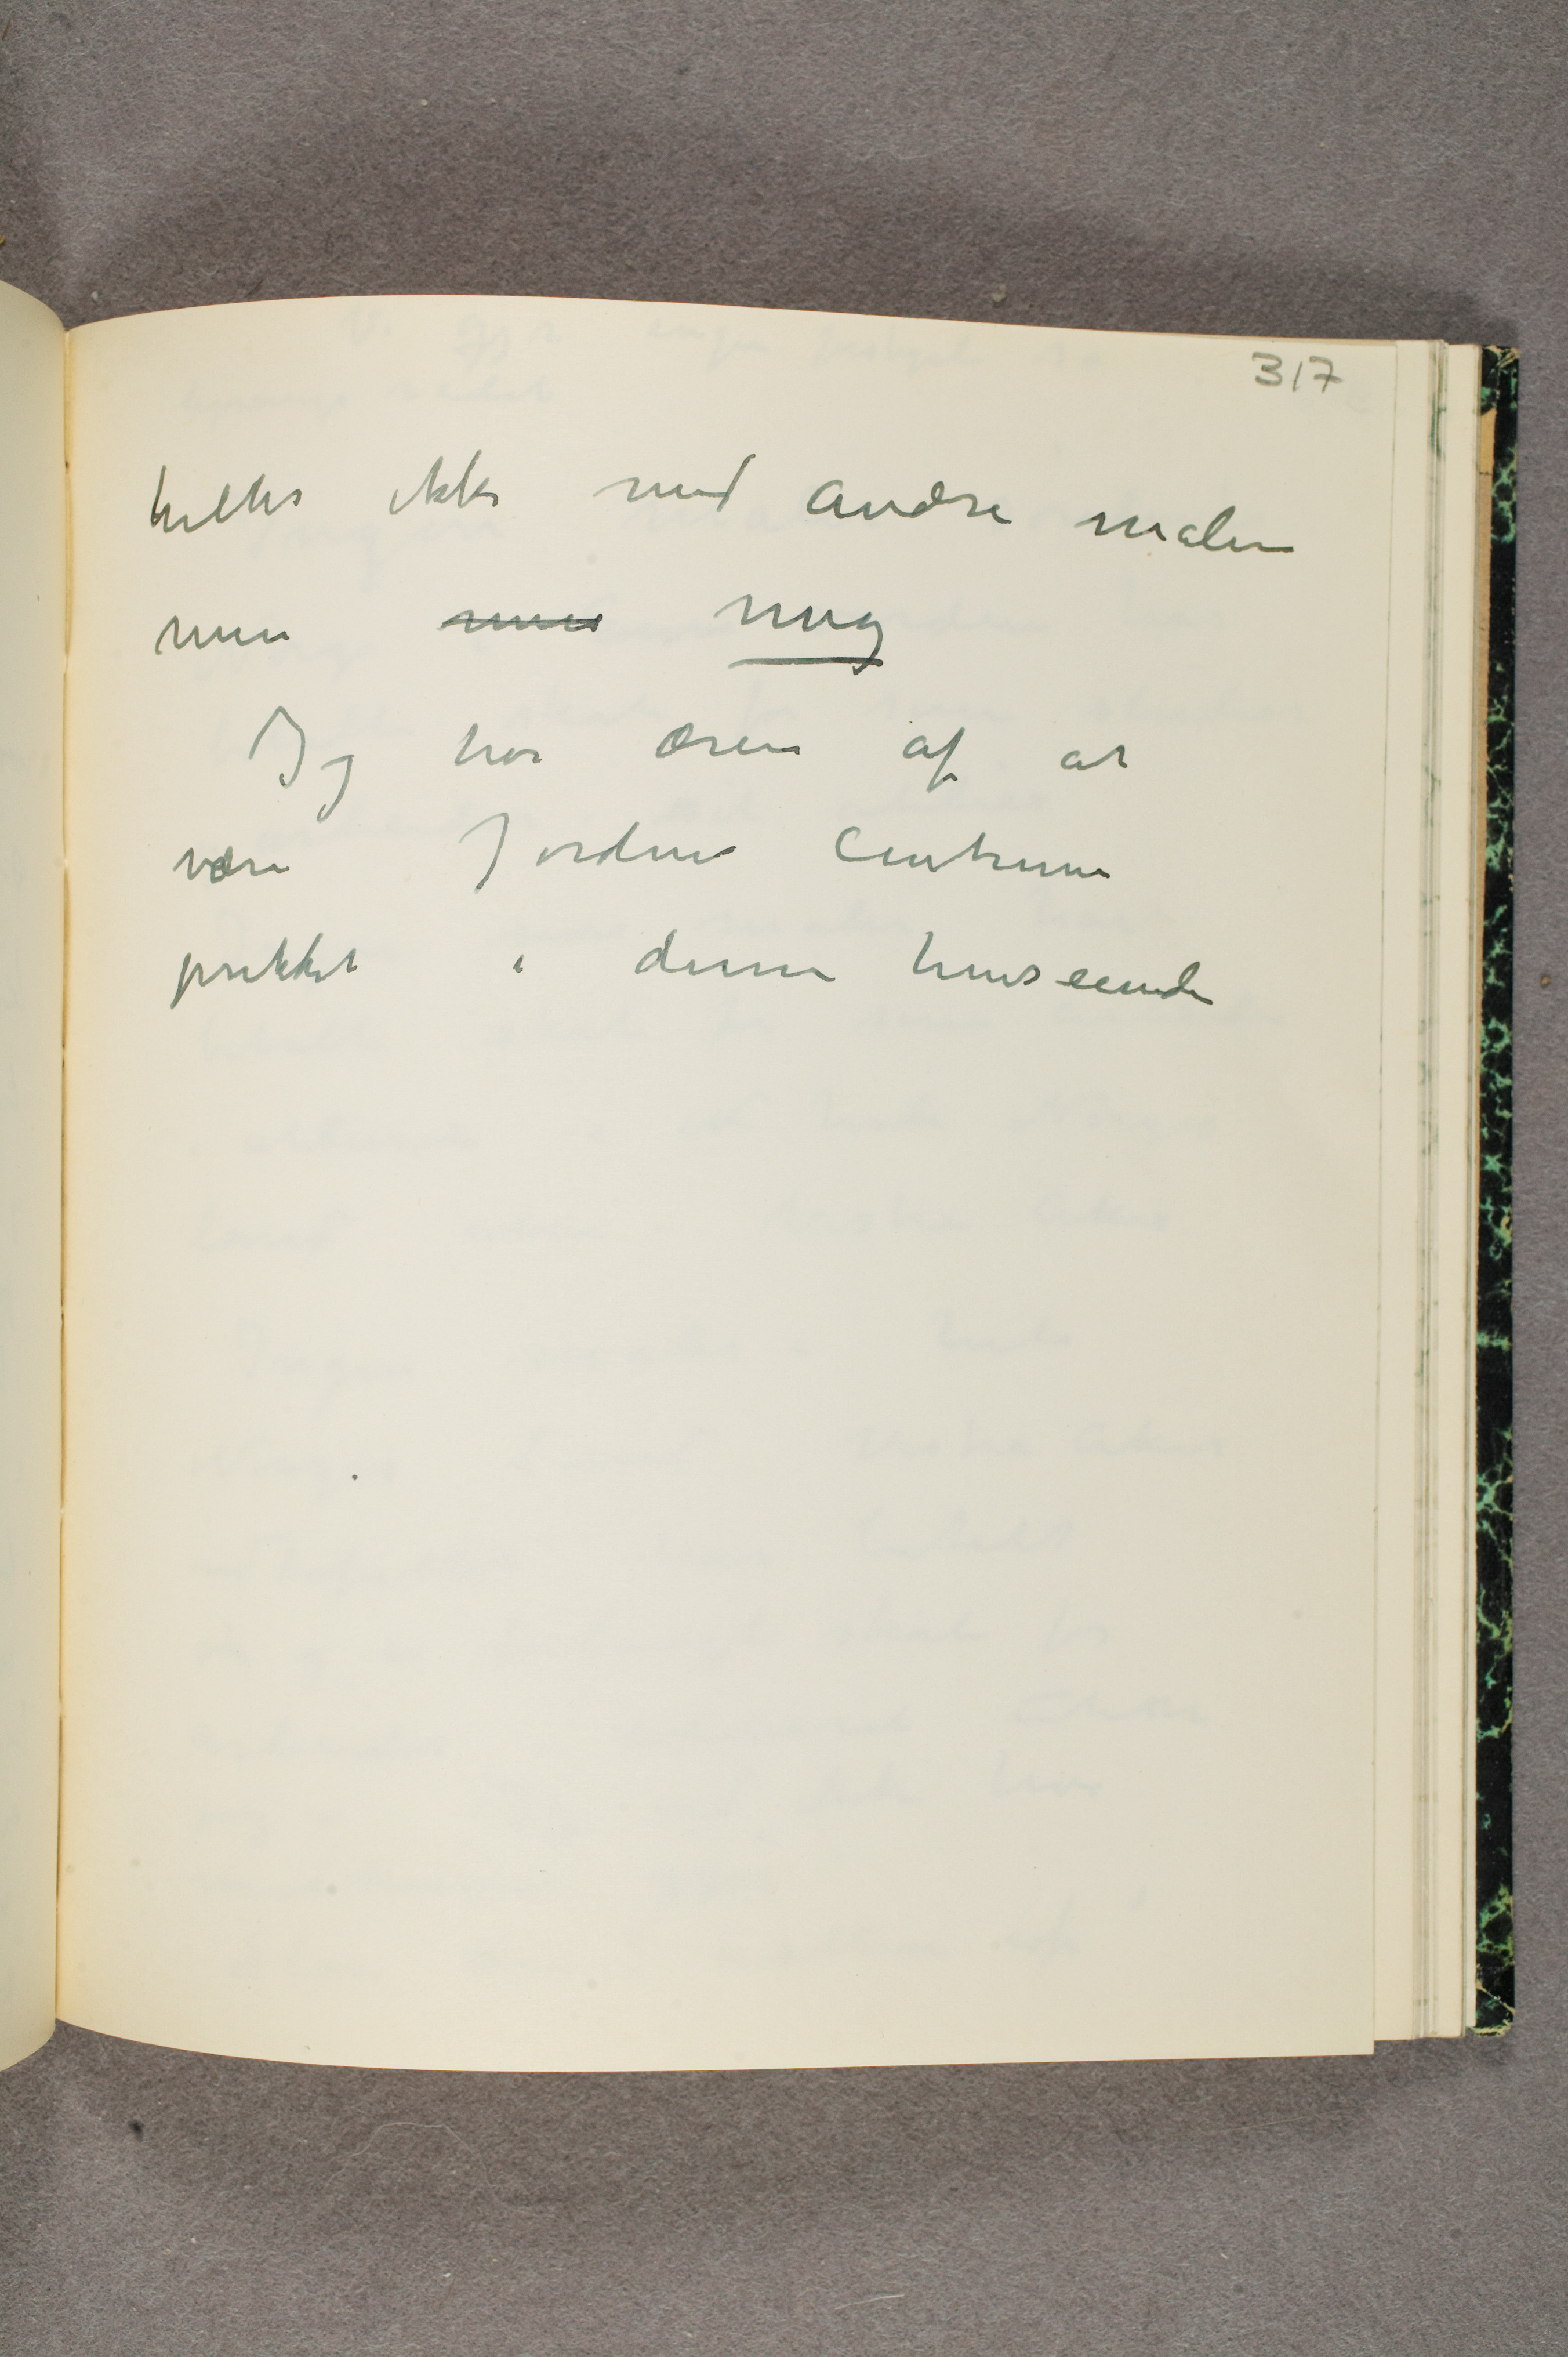 317
heller ikke med andre malere
men med mig
Jeg har æren af at
være Jordens Centrum
prikket i denne henseende